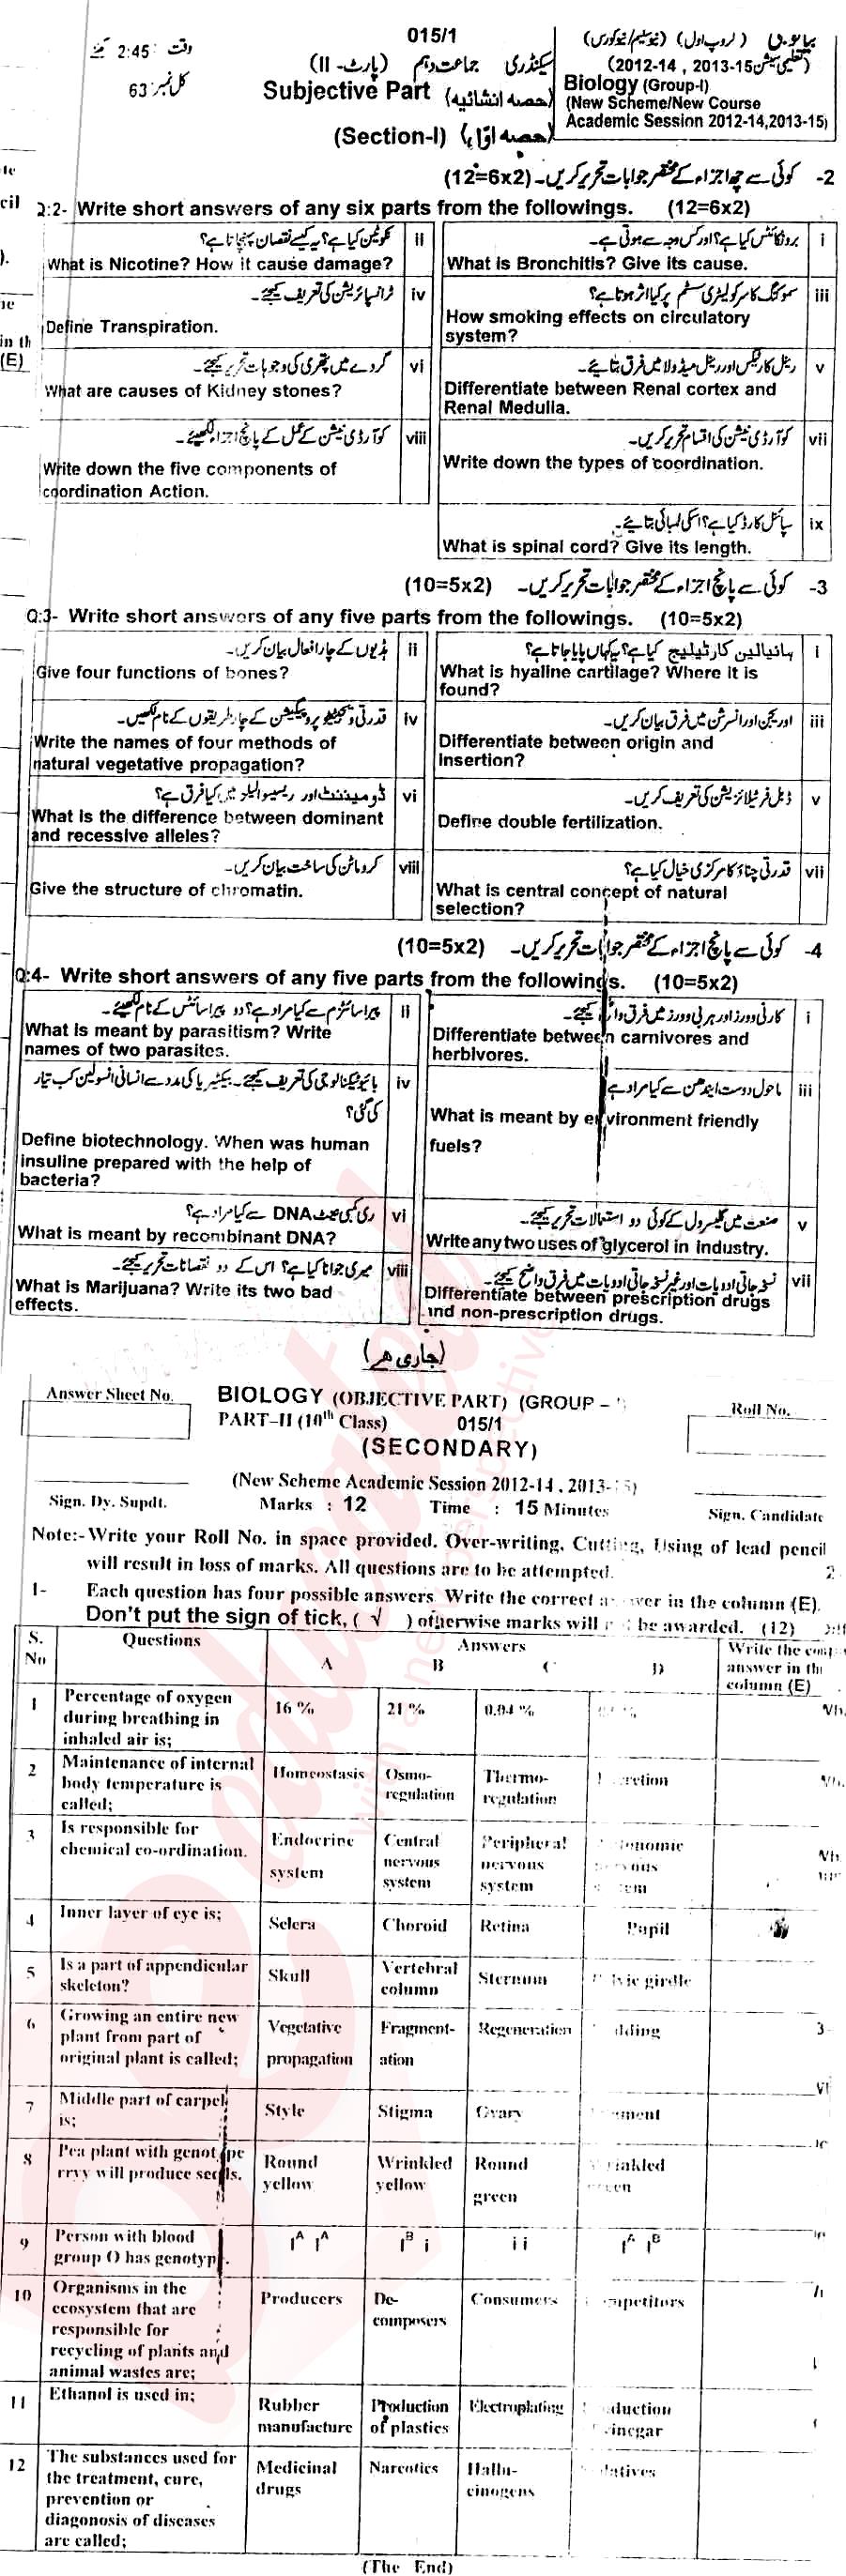 015/1
وقت 2:45 گھنٹے
کل نمبر 63
سیکنڈری جماعت دہم (پارٹ-II)
Subjective Part (حصہ انشائیہ)
(Section-I) (حصہ اوّل)
بیالوجی (گروپ اول) (نیو سکیم/نیو کورس)
(تعلیمی سیشن 2013-15 , 2012-14)
Biology (Group-I)
(New Scheme/New Course
Academic Session 2012-14,2013-15)
2- کوئی سے چھ اجزاء کے مختصر جوابات تحریر کریں۔ (12=6x2)
Q:2- Write short answers of any six parts from the followings. (12=6x2)
i برونکائٹس کیا ہے؟ اور کس وجہ سے ہوتی ہے۔
What is Bronchitis? Give its cause.
ii نکوٹین کیا ہے؟ یہ کیسے نقصان پہنچاتا ہے؟
What is Nicotine? How it cause damage?
iii سموکنگ کا سرکولیٹری سسٹم پر کیا اثر ہوتا ہے؟
How smoking effects on circulatory
system?
iv ٹرانسپائریشن کی تعریف کیجئے۔
Define Transpiration.
v رینل کارٹیکس اور رینل میڈولا میں فرق بتایئے۔
Differentiate between Renal cortex and
Renal Medulla.
vi گردے میں پتھری کی وجوہات تحریر کیجئے۔
What are causes of Kidney stones?
vii کوآرڈی نیشن کی اقسام تحریر کریں۔
Write down the types of coordination.
viii کوآرڈی نیشن کے عمل کے پانچ اجزاء لکھیئے۔
Write down the five components of
coordination Action.
ix سپائنل کارڈ کیا ہے؟ اسکی لمبائی بتایئے۔
What is spinal cord? Give its length.
3- کوئی سے پانچ اجزاء کے مختصر جوابات تحریر کریں۔ (10=5x2)
Q:3- Write short answers of any five parts from the followings. (10=5x2)
i ہائیالین کارٹیلیج کیا ہے؟ یہ کہاں پایا جاتا ہے؟
What is hyaline cartilage? Where it is
found?
ii ہڈیوں کے چار افعال بیان کریں۔
Give four functions of bones?
iii اوریجن اور انسرشن میں فرق بیان کریں۔
Differentiate between origin and
Insertion?
iv قدرتی ویجیٹیٹو پروپیگیشن کے چار طریقوں کے نام لکھیں۔
Write the names of four methods of
natural vegetative propagation?
v ڈبل فرٹیلائزیشن کی تعریف کریں۔
Define double fertilization.
vi ڈومیننٹ اور ریسیسوالیلو میں کیا فرق ہے؟
What is the difference between dominant
and recessive alleles?
vii قدرتی چناؤ کا مرکزی خیال کیا ہے؟
What is central concept of natural
selection?
viii کروماٹن کی ساخت بیان کریں۔
Give the structure of chromatin.
4- کوئی سے پانچ اجزاء کے مختصر جوابات تحریر کریں۔ (10=5x2)
Q:4- Write short answers of any five parts from the followings. (10=5x2)
i کارنی وورز اور ہربی وورز میں فرق واضح کیجئے۔
Differentiate between carnivores and
herbivores.
ii پیراسائٹزم سے کیا مراد ہے؟ دو پیراسائٹس کے نام لکھیئے۔
What is meant by parasitism? Write
names of two parasites.
iii ماحول دوست ایندھن سے کیا مراد ہے
What is meant by environment friendly
fuels?
iv بائیوٹیکنالوجی کی تعریف کیجئے۔ بیکٹیریا کی مدد سے انسانی انسولین کب تیار
کی گئی؟
Define biotechnology. When was human
insuline prepared with the help of
bacteria?
v صنعت میں گلیسرول کے کوئی دو استعمالات تحریر کیجئے۔
Write any two uses of glycerol in industry.
vi ری کمبی نینٹ DNA سے کیا مراد ہے؟
What is meant by recombinant DNA?
vii نسخہ جاتی ادویات اور غیر نسخہ جاتی ادویات میں فرق واضح کیجئے۔
Differentiate between prescription drugs
and non-prescription drugs.
viii میری جوانا کیا ہے؟ اس کے دو نقصانات تحریر کیجئے۔
What is Marijuana? Write its two bad
effects.
(جاری ہے)
Answer Sheet No.
BIOLOGY (OBJECTIVE PART) (GROUP –
Roll No.
PART–II (10th Class) 015/1
(SECONDARY)
(New Scheme Academic Session 2012-14, 2013-15)
Sign. Dy. Supdt. Marks : 12 Time : 15 Minutes Sign. Candidate
Note:- Write your Roll No. in space provided. Over-writing, Cutting, Using of lead pencil
will result in loss of marks. All questions are to be attempted.
1- Each question has four possible answers. Write the correct answer in the column (E).
Don't put the sign of tick, ( √ ) otherwise marks will not be awarded. (12)
S. No Questions Answers A B C D Write the correct answer in the column (E)
1 Percentage of oxygen during breathing in inhaled air is; 16 % 21 % 0.04 %
2 Maintenance of internal body temperature is called; Homeostasis Osmo-regulation Thermo-regulation Excretion
3 Is responsible for chemical co-ordination. Endocrine system Central nervous system Peripheral nervous system Autonomic nervous system
4 Inner layer of eye is; Sclera Choroid Retina Pupil
5 Is a part of appendicular skeleton? Skull Vertebral column Sternum Pelvic girdle
6 Growing an entire new plant from part of original plant is called; Vegetative propagation Fragment-ation Regeneration Budding
7 Middle part of carpel is; Style Stigma Ovary
8 Pea plant with genotype rryy will produce seeds. Round yellow Wrinkled yellow Round green Wrinkled green
9 Person with blood group O has genotype. I^A I^A I^B i i i I^A I^B
10 Organisms in the ecosystem that are responsible for recycling of plants and animal wastes are; Producers De-composers Consumers Competitors
11 Ethanol is used in; Rubber manufacture Production of plastics Electroplating Production vinegar
12 The substances used for the treatment, cure, prevention or diagonosis of diseases are called; Medicinal drugs Narcotics Hallu-cinogens Sedatives
(The End)